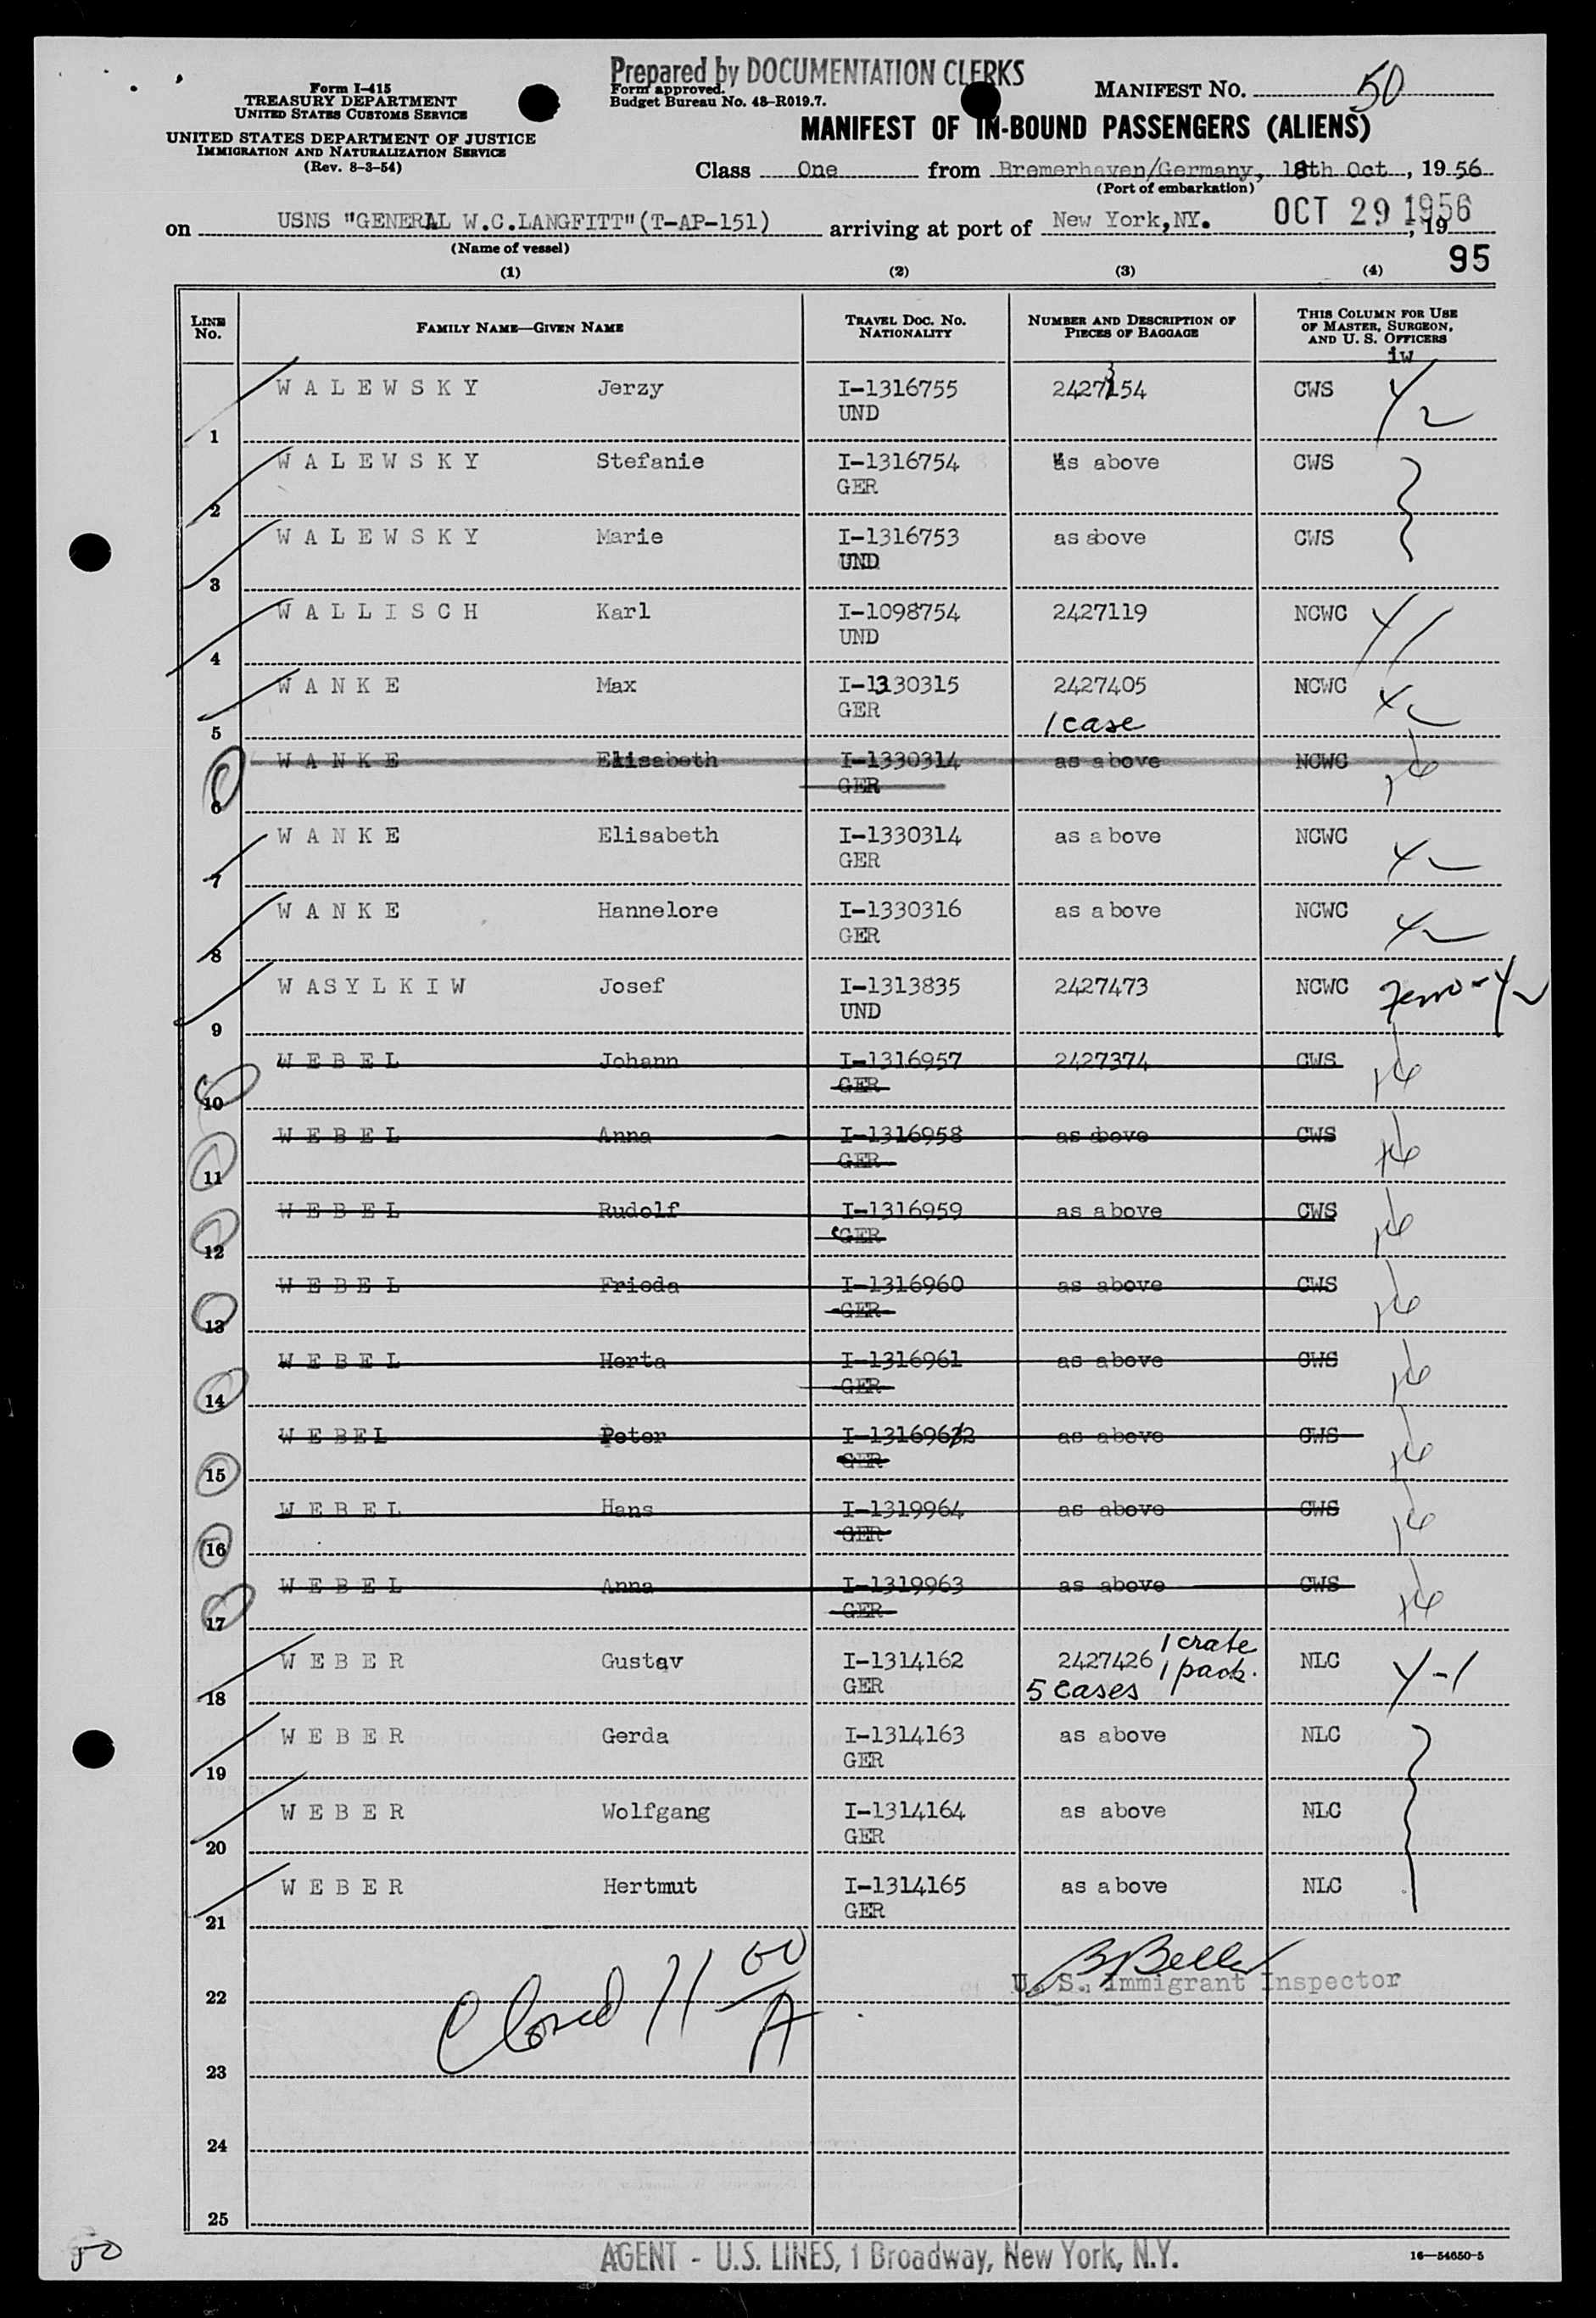 Prepared by DOCUMENTATION CLERKS
Form I-415
TREASURY DEPARTMENT
UNITED STATES CUSTOMS SERVICE
UNITED STATES DEPARTMENT OF JUSTICE
IMMIGRATION AND NATURALIZATION SERVICE
(Rev. 8-3-54)
Form approved.
Budget Bureau No. 43-R019.7.
MANIFEST NO. 50
MANIFEST OF IN-BOUND PASSENGERS (ALIENS)
Class One from Bremerhaven/Germany, 18th Oct, 1956
(Port of embarkation)
on USNS "GENERAL W.C.LANGFITT"(T-AP-151) arriving at port of New York,NY. OCT 29 1956, 19
(Name of vessel)
95
(1) (2) (3) (4)
LINE No. FAMILY NAME—GIVEN NAME TRAVEL DOC. NO. NATIONALITY NUMBER AND DESCRIPTION OF PIECES OF BAGGAGE THIS COLUMN FOR USE OF MASTER, SURGEON, AND U. S. OFFICERS
iw
1 WALEWSKY Jerzy I-1316755 2427354 CWS
UND
2 WALEWSKY Stefanie I-1316754 as above CWS
GER
3 WALEWSKY Marie I-1316753 as above CWS
UND
4 WALLISCH Karl I-1098754 2427119 NCWC
UND
5 WANKE Max I-1330315 2427405 NCWC
GER 1 case
6 WANKE Elisabeth I-1330314 as above NCWC
GER
7 WANKE Elisabeth I-1330314 as above NCWC
GER
8 WANKE Hannelore I-1330316 as above NCWC
GER
9 WASYLKIW Josef I-1313835 2427473 NCWC
UND
10 WEBEL Johann I-1316957 2427374 CWS
GER
11 WEBEL Anna I-1316958 as above CWS
GER
12 WEBEL Rudolf I-1316959 as above CWS
GER
13 WEBEL Frieda I-1316960 as above CWS
GER
14 WEBEL Herta I-1316961 as above CWS
GER
15 WEBEL Peter I-1316962 as above CWS
GER
16 WEBEL Hans I-1319964 as above CWS
GER
17 WEBEL Anna I-1319963 as above CWS
GER
18 WEBER Gustav I-1314162 2427426 1 crate NLC Y-1
GER 5 cases 1 pack.
19 WEBER Gerda I-1314163 as above NLC
GER
20 WEBER Wolfgang I-1314164 as above NLC
GER
21 WEBER Hertmut I-1314165 as above NLC
GER
22 Closed 11 00 A
U. S. Immigrant Inspector
23
24
25
50
AGENT - U.S. LINES, 1 Broadway, New York, N.Y.
16—54650-5